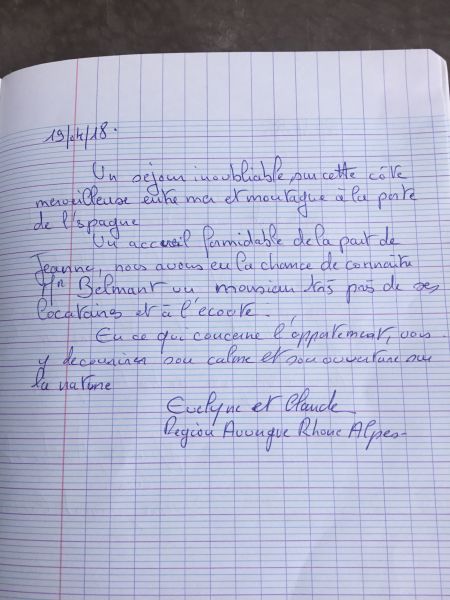 19/04/18.
Un séjour inoubliable sur cette côte
merveilleuse entre mer et montagne à la porte
de l'espagne
Un accueil formidable de la part de
Jeanne, nous avons eu la chance de connaitre
Mr Belmant un monsieur très près de ses
locataires et à l'écoute.
En ce qui concerne l'appartement, vous
y decouvrirez son calme et son ouverture sur
la nature
Evelyne et Claude
Region Auvergne Rhone Alpes-